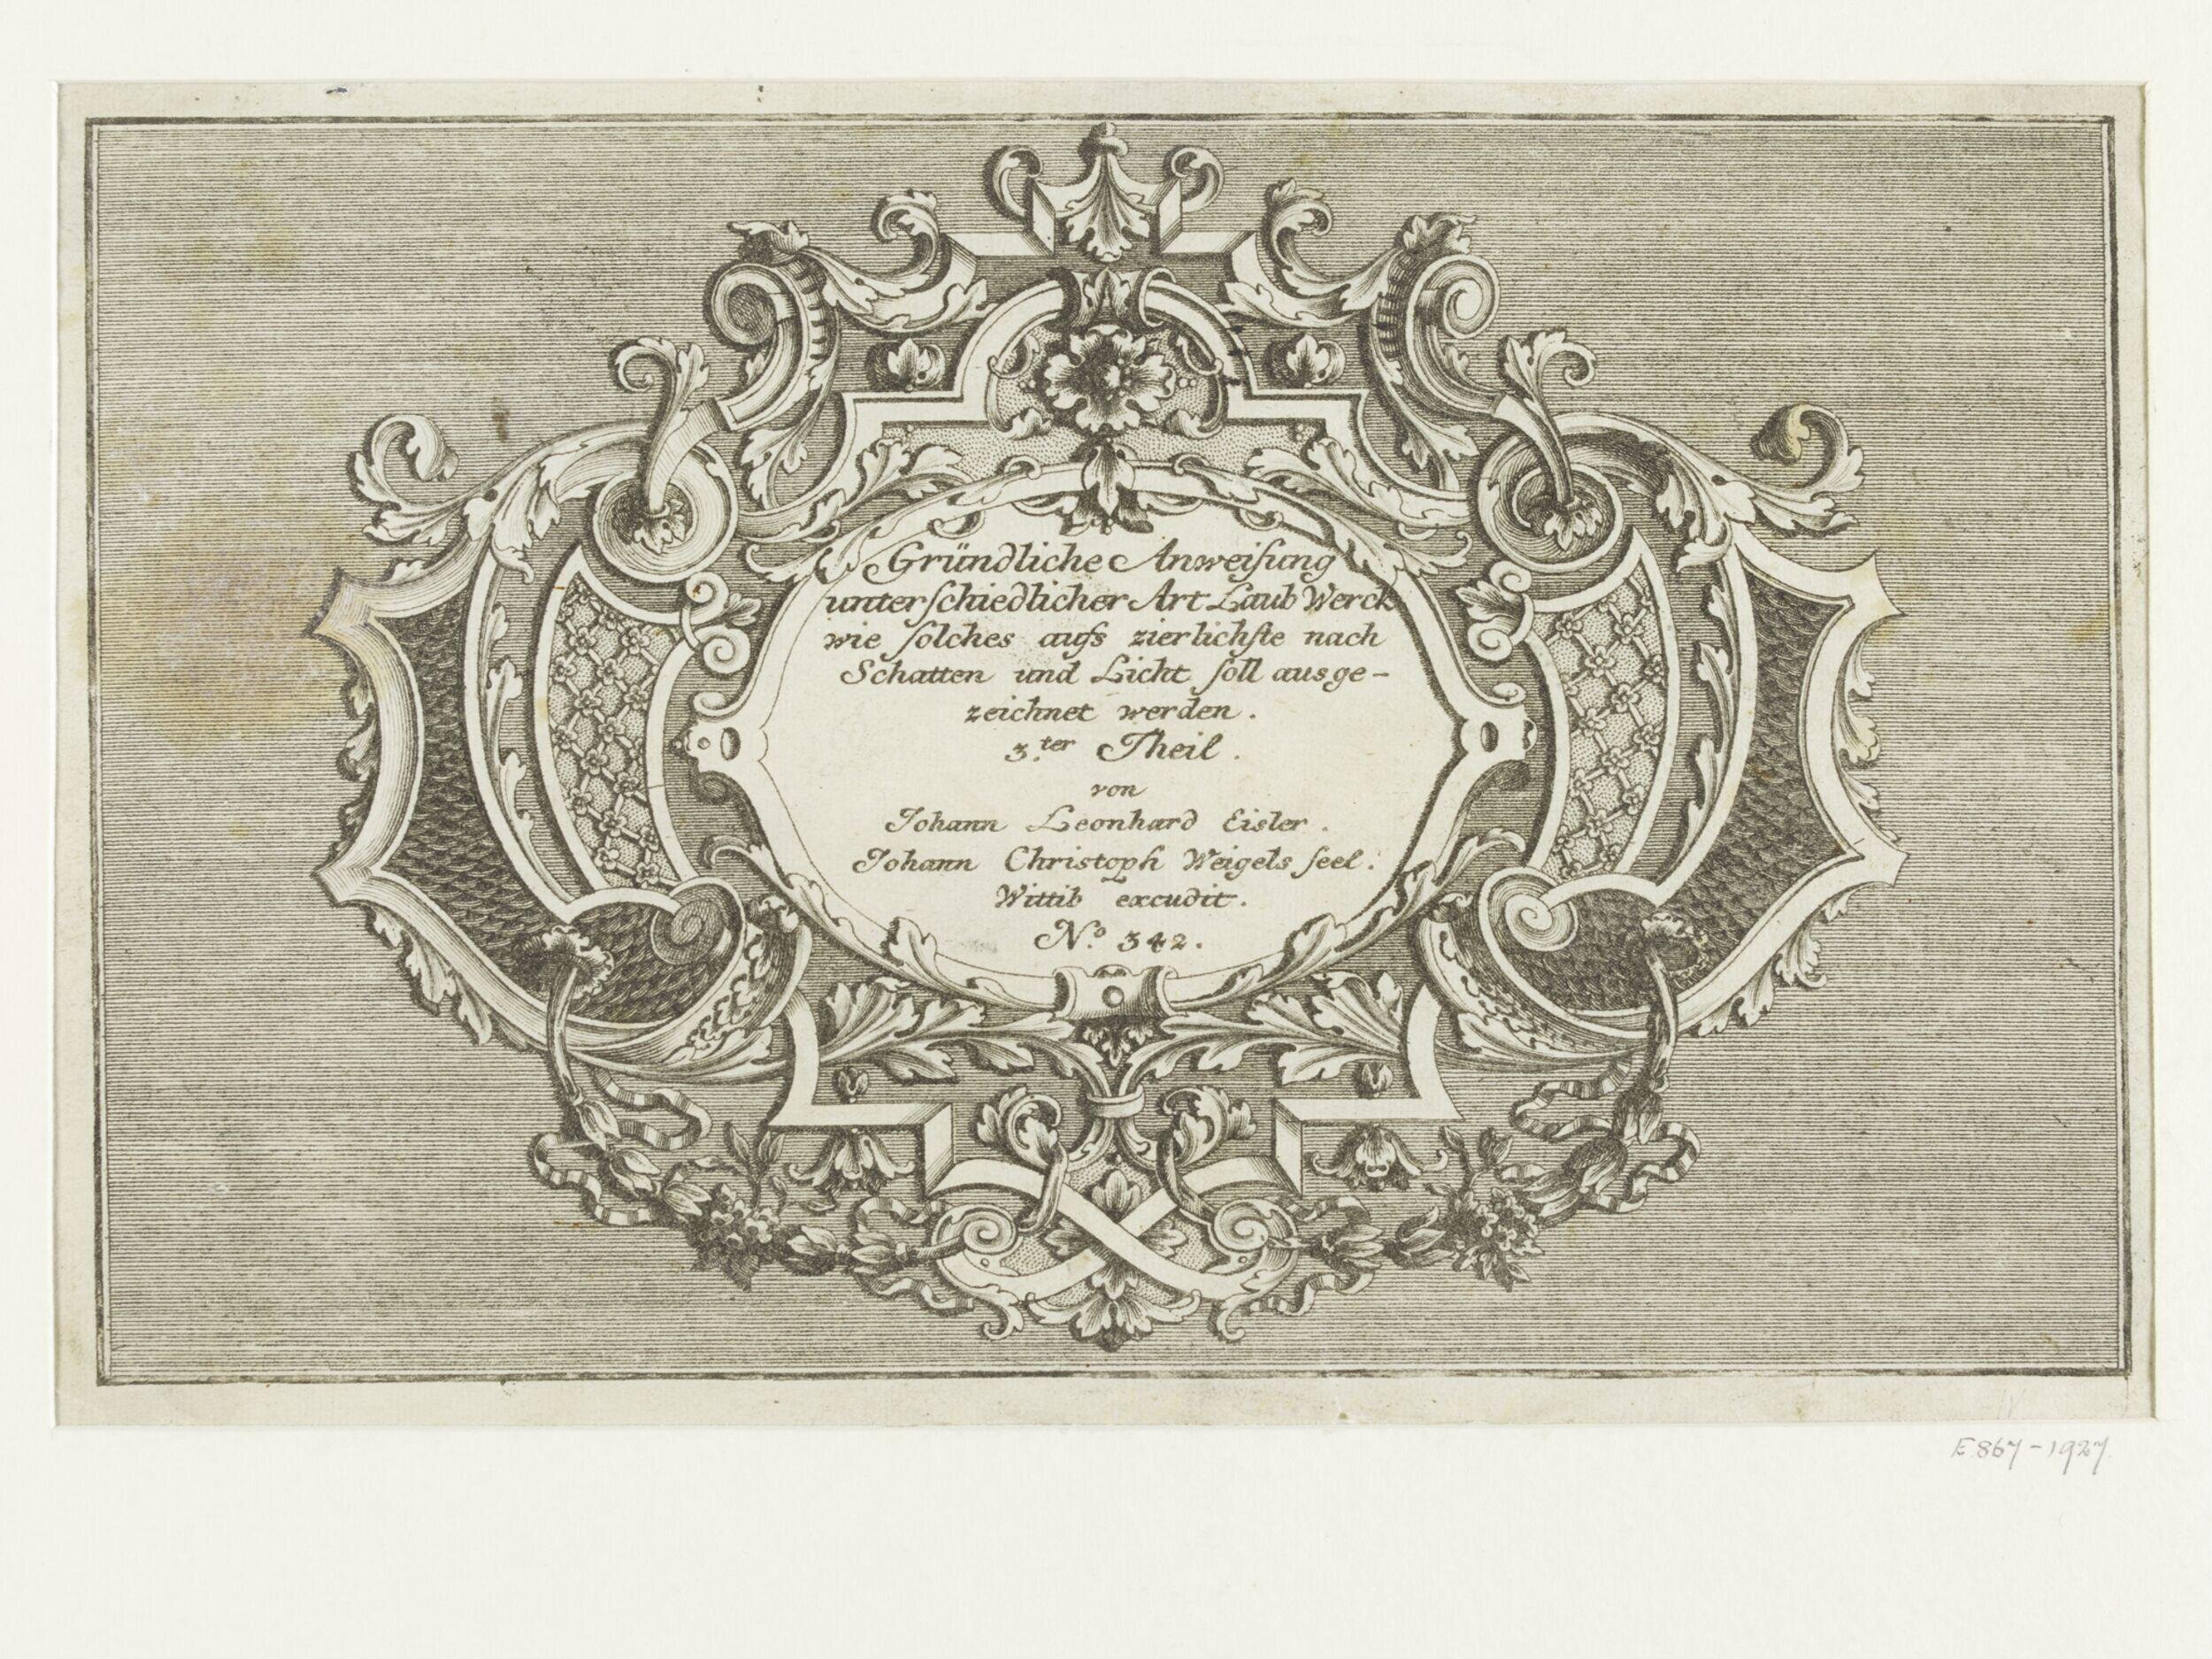 Gründliche Anweiſung
unterſchiedlicher Art Laub Werck
wie ſolches aufs zierlichſte nach
Schatten und Licht ſoll ausge-
zeichnet werden.
3.ter Theil.
von
Johann Leonhard Eisler.
Johann Christoph Weigels ſeel.
Wittib excudit.
No. 342.
E.867-1927.